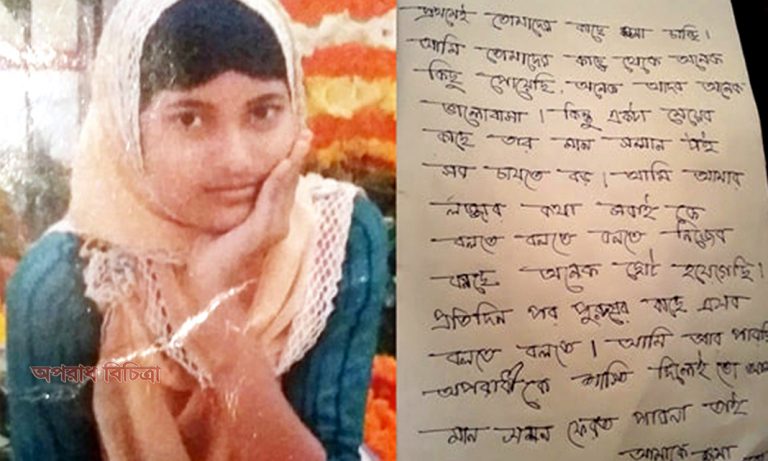 প্রথমেই তোমাদের কাছে ক্ষমা চাচ্ছি।
আমি তোমাদের কাছে থেকে অনেক
কিছু পেয়েছি, অনেক আদর অনেক
ভালোবাসা। কিন্তু একটা মেয়ের
কাছে তার মান সম্মান টাই
সব চাইতে বড়। আমি আমার
লজ্জার কথা সবাই কে
বলতে বলতে বলতে নিজের
কাছে অনেক ছোট হয়েগেছি।
প্রতিদিন পর পুরুষের কাছে এসব
বলতে বলতে। আমি আর পারছি
অপরাধীকে শাস্তি দিলেই তো
মান সম্মন ফেরত পাবনা তাই
আমাকে ক্ষমা
অপরাধ বিচিত্রা